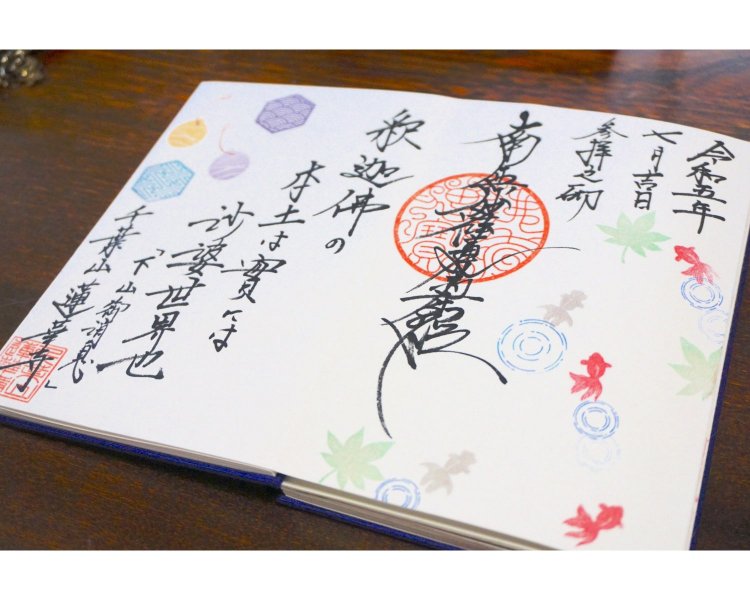 令和五年
七月吉日
参拝之砌
南無妙法蓮華経
釈迦佛の
本土は實には
沙婆世界也
「下山御消息」
千葉山 蓮華寺